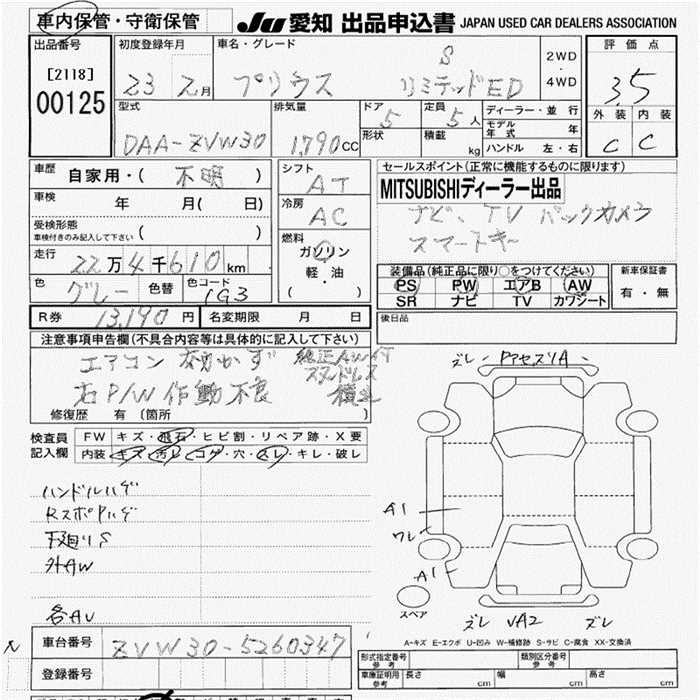 車内保管・守衛保管
JU 愛知 出品申込書 JAPAN USED CAR DEALERS ASSOCIATION
出品番号
[2118]
00125
初度登録年月
23 2月
車名・グレード
プリウス
S
リミテッドED
2WD
4WD
評価点
3.5
外装 内装
C C
型式
DAA-ZVW30
排気量
1,790CC
ドア
5
定員
5人
形状
積載
kg
ディーラー・並行
モデル年式 年
ハンドル 左・右
車歴
自家用・( 不明 )
車検
年 月( 日)
受検形態
車検付きのみ記入して下さい ( )
走行
22万4千610km
色
グレー
色替
色コード
1G3
シフト
AT
冷房
AC
燃料
ガソリン
軽・油
( )
セールスポイント(正常に機能するものに限ります)
MITSUBISHIディーラー出品
ナビ、TV バックカメラ
スマートキー
装備品(純正品に限り○をつけてください)
PS PW エアB AW
SR ナビ TV カワシート
新車保証書
有・無
R券 13,190円
名変期限 月 日
後日品
注意事項申告欄(不具合内容等は具体的に記入して下さい)
エアコン 効かず 純正AW付
スタッドレス
右P/W作動不良 積込
修復歴 有(箇所 )
検査員記入欄
FW キズ・飛石・ヒビ割・リペア跡・X要
内装 キズ・汚レ・コゲ・穴・スレ・キレ・破レ
ハンドルハゲ
RスポPハゲ
下廻りS
外AW
各AU
ズレ PアセスリA
A1
ワレ
A1
スペア
ズレ VA2 ズレ
A-キズ E-エクボ U-凹み W-補修跡 S-サビ C-腐食 XX-交換済
車台番号
ZVW30-5260347
登録番号
形式指定番号
参考
類別区分番号
参考
車庫証明用
参考
長さ cm
幅 cm
高さ cm